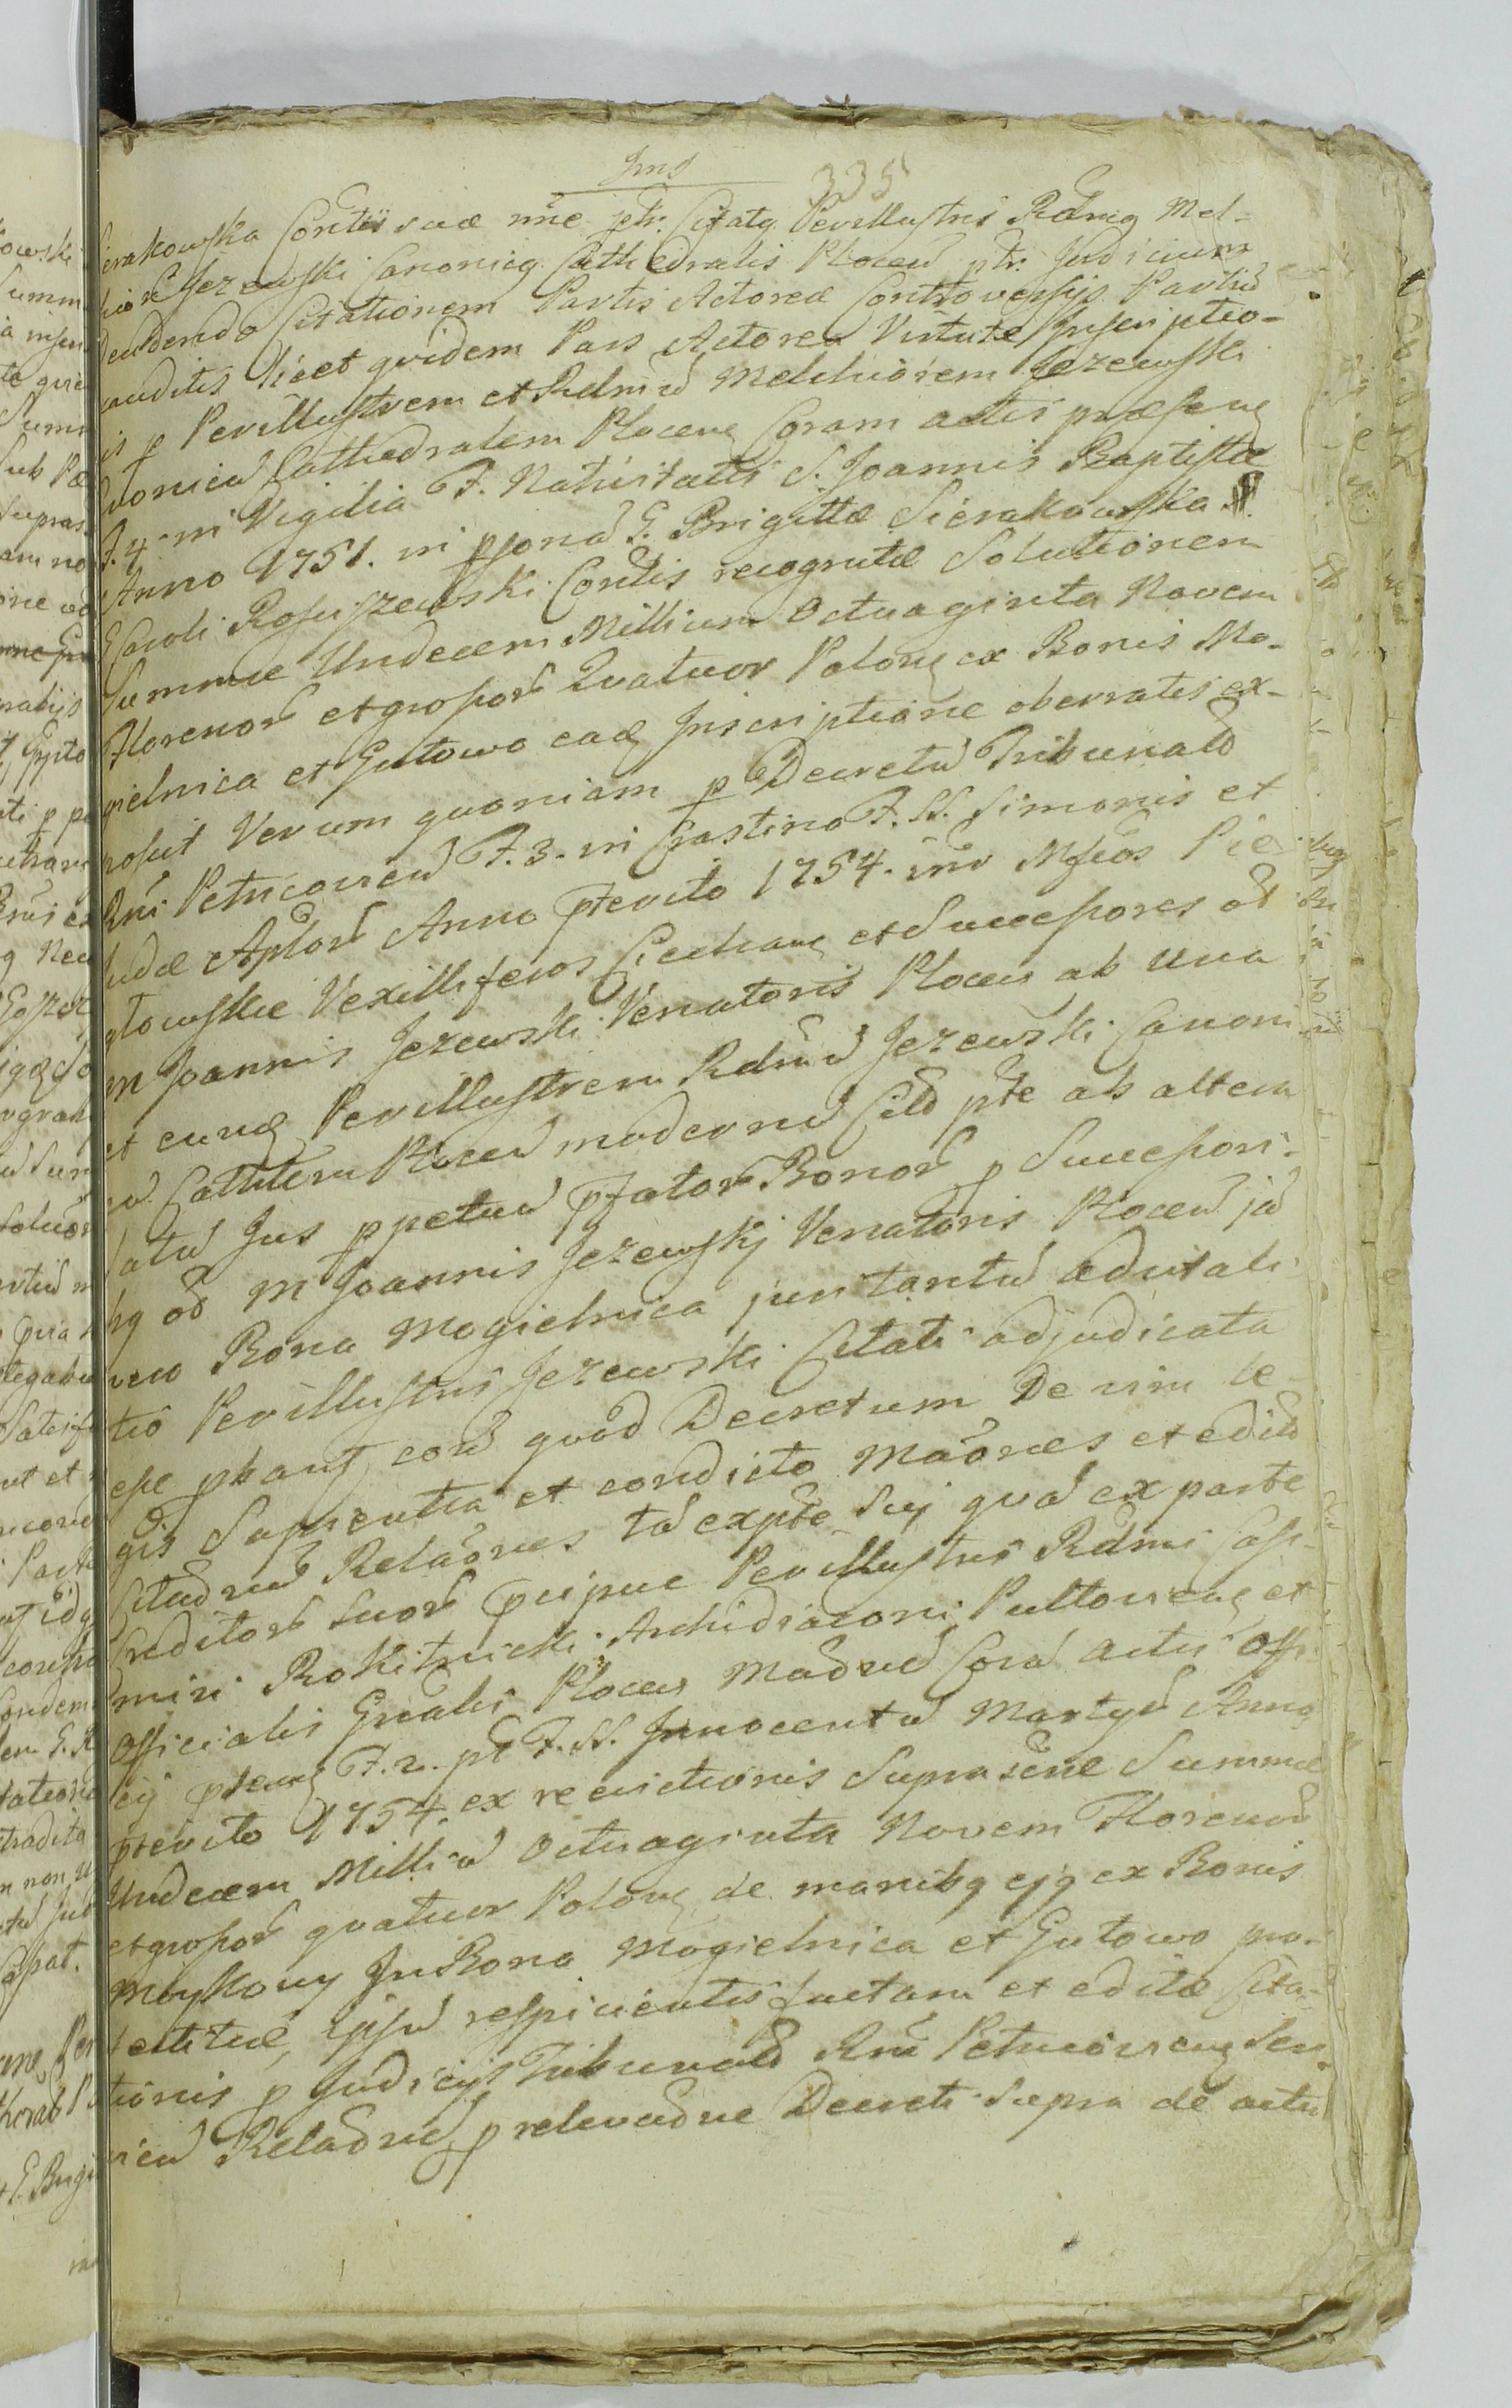 335
Sierakowska Contis suae nne ptr. Citatq Perillustris Rdmq Mel-
chior Jezewski Canonicq Cathedralis Plocen ptr. Judicium
Deudendo Citationem Partis Actoreæ Controversijs Partiu
auditis licet quidem Pars Actorea Virtute Inscriptio-
is p Perillustrem et Rdmu Melchiorem Jezewski
Canonicu Cathedralem Plocenq Coram actis præsenq
F. 4 in Vigilia F. Nativitatis S. Joannis Baptistæ
Anno 1751. in psona G. Brigittæ Sierakowska
G Caroli Rosciszewski Contis recognitæ Solutionem
Summæ Undecem Millium Octuaginta Novem
Florenor et grossor Quatuor Polonq ex Bonis Mo-
gielnica et Gutowo eadq Inscriptione oberratis ex-
posuit Verum quoniam p Decretu Tribunald
Rni Petricovien F. 3. in Crastino F. SS. Simonis et
Judæ Aplor Anno pterito 1754. intr Mfcos Pie-
glowskie Vexilliferos Ciechanq et Successores od
M Joannis Jezewski Venatoris Plocen ab una
et eundq Perillustrem Rdmu Jezewski Canoni-
cu. Cathlem Plocen modernu Citd pte ab altera
latu Jus ppetuu pfator Bonor p Successori-
bq od M Joannis Jezewskj Venatoris Plocen ja
vero Bona Mogielnica juri tantu advitali-
tio Perillustris Jezewski Citati adjudicata
esse phanq eord quod Decretum De vim le-
gis Sapientia et condicto Maônes et edid
Citaônu Relaônes ta expte Sui qua ex parte
Creditor Suor pcipue Perillustris Rdmi Casi-
miri Rokitnicki Archidiaconi Pultovienq et
Officialis Gnalis Plocen Maônu Cora actis Offi-
cij ptenq F. 2. pt F. SS. Innocentu Martyr Anno
pterito 1754. ex re evictionis Suprascrne Summæ
Undecem Milliu Octuaginta Novem Florenor
et grossor quatuor Polonq de manibq ejq ex Bonis
Moykowy In Bona Mogielnica et Gutowo pro-
tectitiæ, Ipsu respicientis factam et editæ Cita-
tionis p Judicijs Tribunald Rni Petricovienq Ser-
vien Relaônu p relevaône Decreti Supra de actu